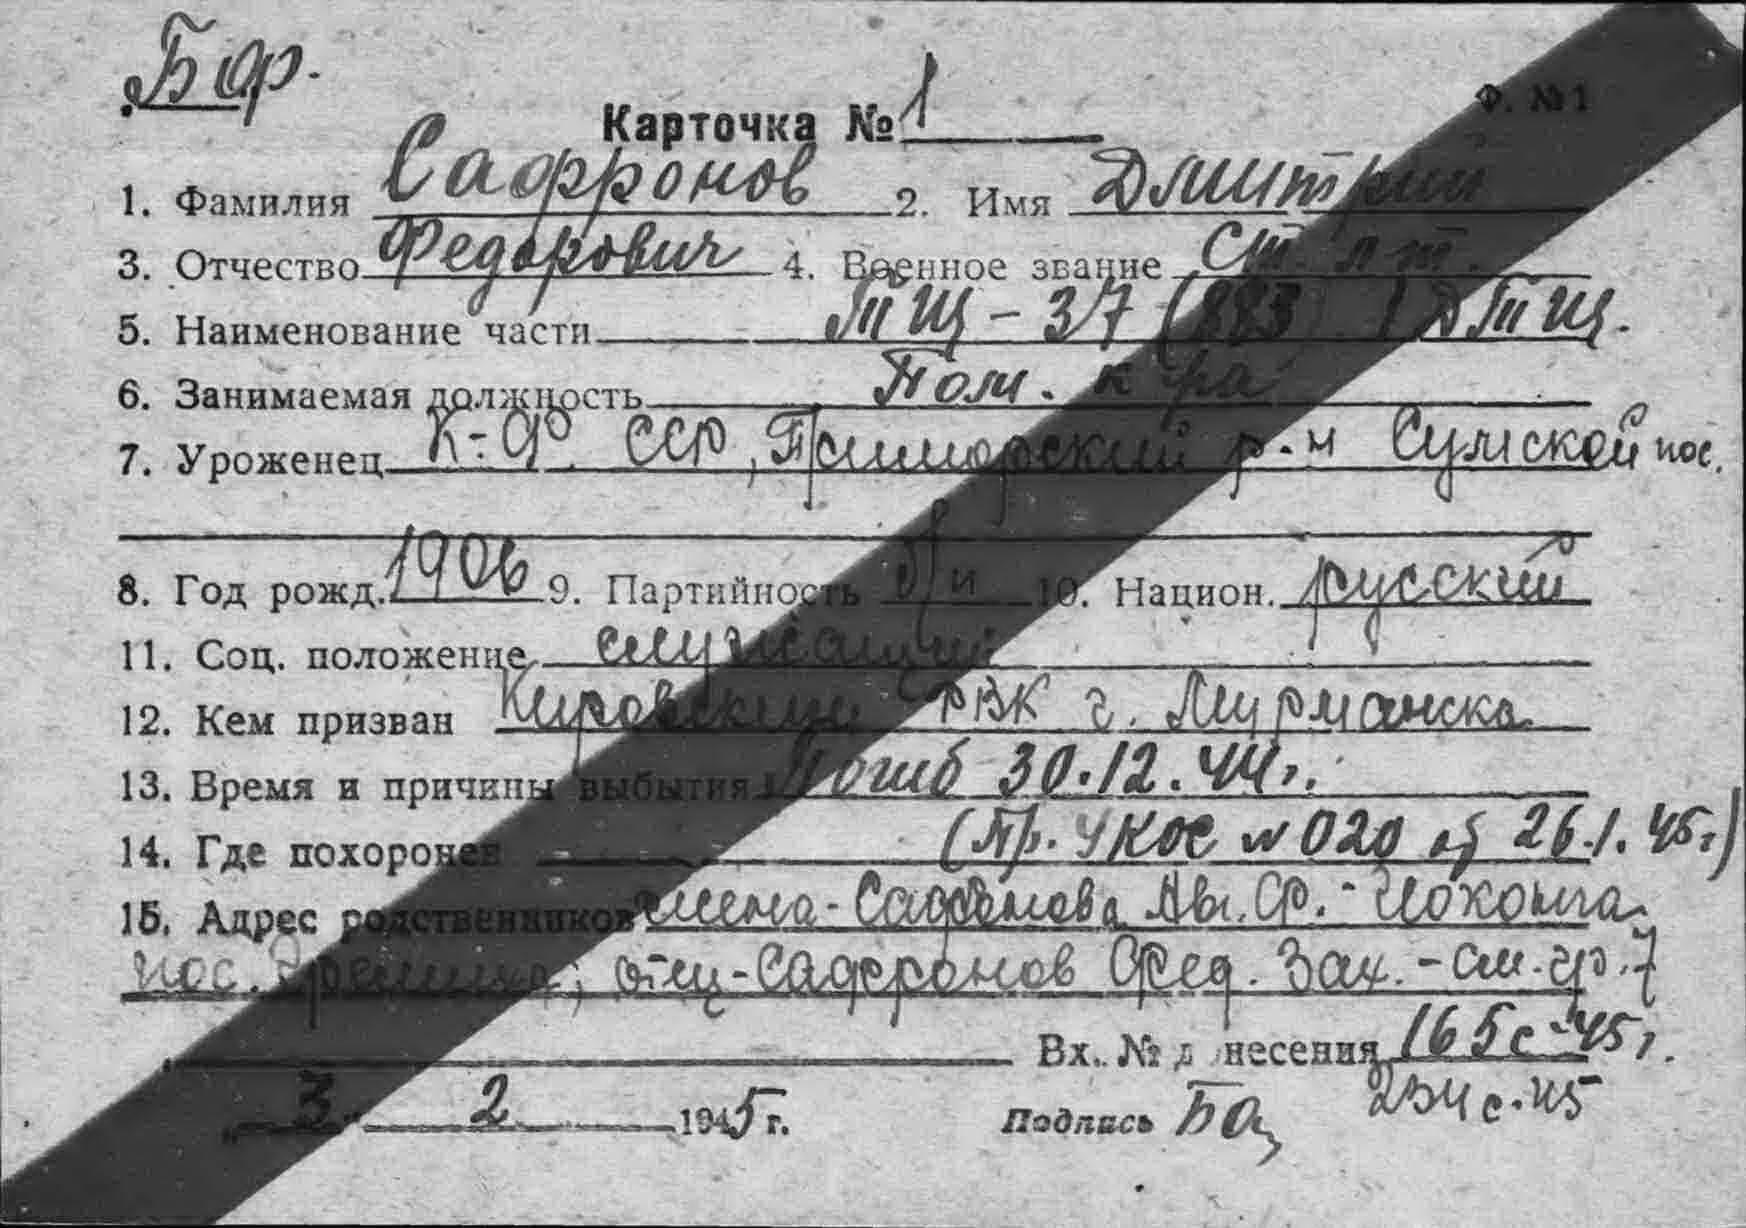 БФ.
Карточка № 1
Ф. №1
1. Фамилия Сафронов 2. Имя Дмитрий
3. Отчество Федорович 4. Военное звание Ст. лт.
5. Наименование части ТЩ-37 (883) 1 ДТЩ.
6. Занимаемая должность Пом. к-ра
7. Уроженец К-Ф. ССР, Приморский р-н Сумской пос.
8. Год рожд. 1906 9. Партийность б/п 10. Национ. русский
11. Соц. положение служащий
12. Кем призван Кировским РВК г. Мурманска
13. Время и причины выбытия Погиб 30.12.44г.
14. Где похоронен (Пр. УКОС № 020 от 26.1.45г)
15. Адрес родственников жена-Сафронова Ф.-Иоканга
пос. Гремиха; отец-Сафронов Фед. Зах. -см. гр. 7
Вх. № донесения 165с-45г.
234с-45
3 2 1945 г. Подпись